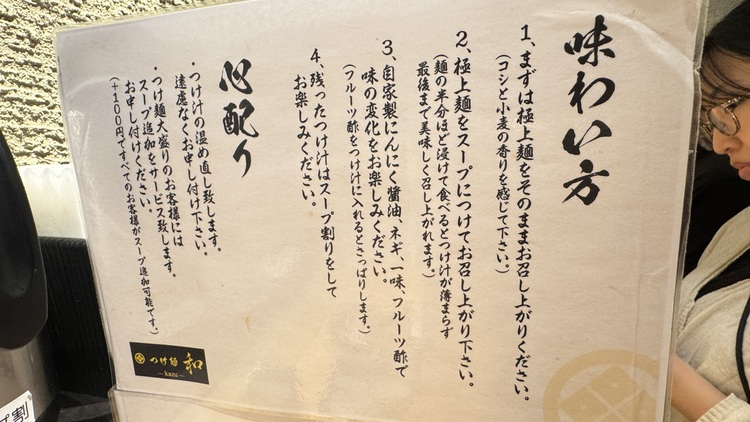 味わい方
1、まずは極上麺をそのままお召し上がりください。
(コシと小麦の香りを感じて下さい。)
2、極上麺をスープにつけてお召し上がり下さい。
(麺の半分ほど浸けて食べるとつけ汁が薄まらず
最後まで美味しく召し上がれます。)
3、自家製にんにく醬油、ネギ、一味、フルーツ酢で
味の変化をお楽しみください。
(フルーツ酢をつけ汁に入れるとさっぱりします。)
4、残ったつけ汁はスープ割りをして
お楽しみください。
心配り
・つけ汁の温め直し致します。
遠慮なくお申し付け下さい。
・つけ麺大盛りのお客様には
スープ追加をサービス致します。
お申し付けください。
(+100円ですべてのお客様がスープ追加可能です。)
つけ麺 和
-kazu-
割